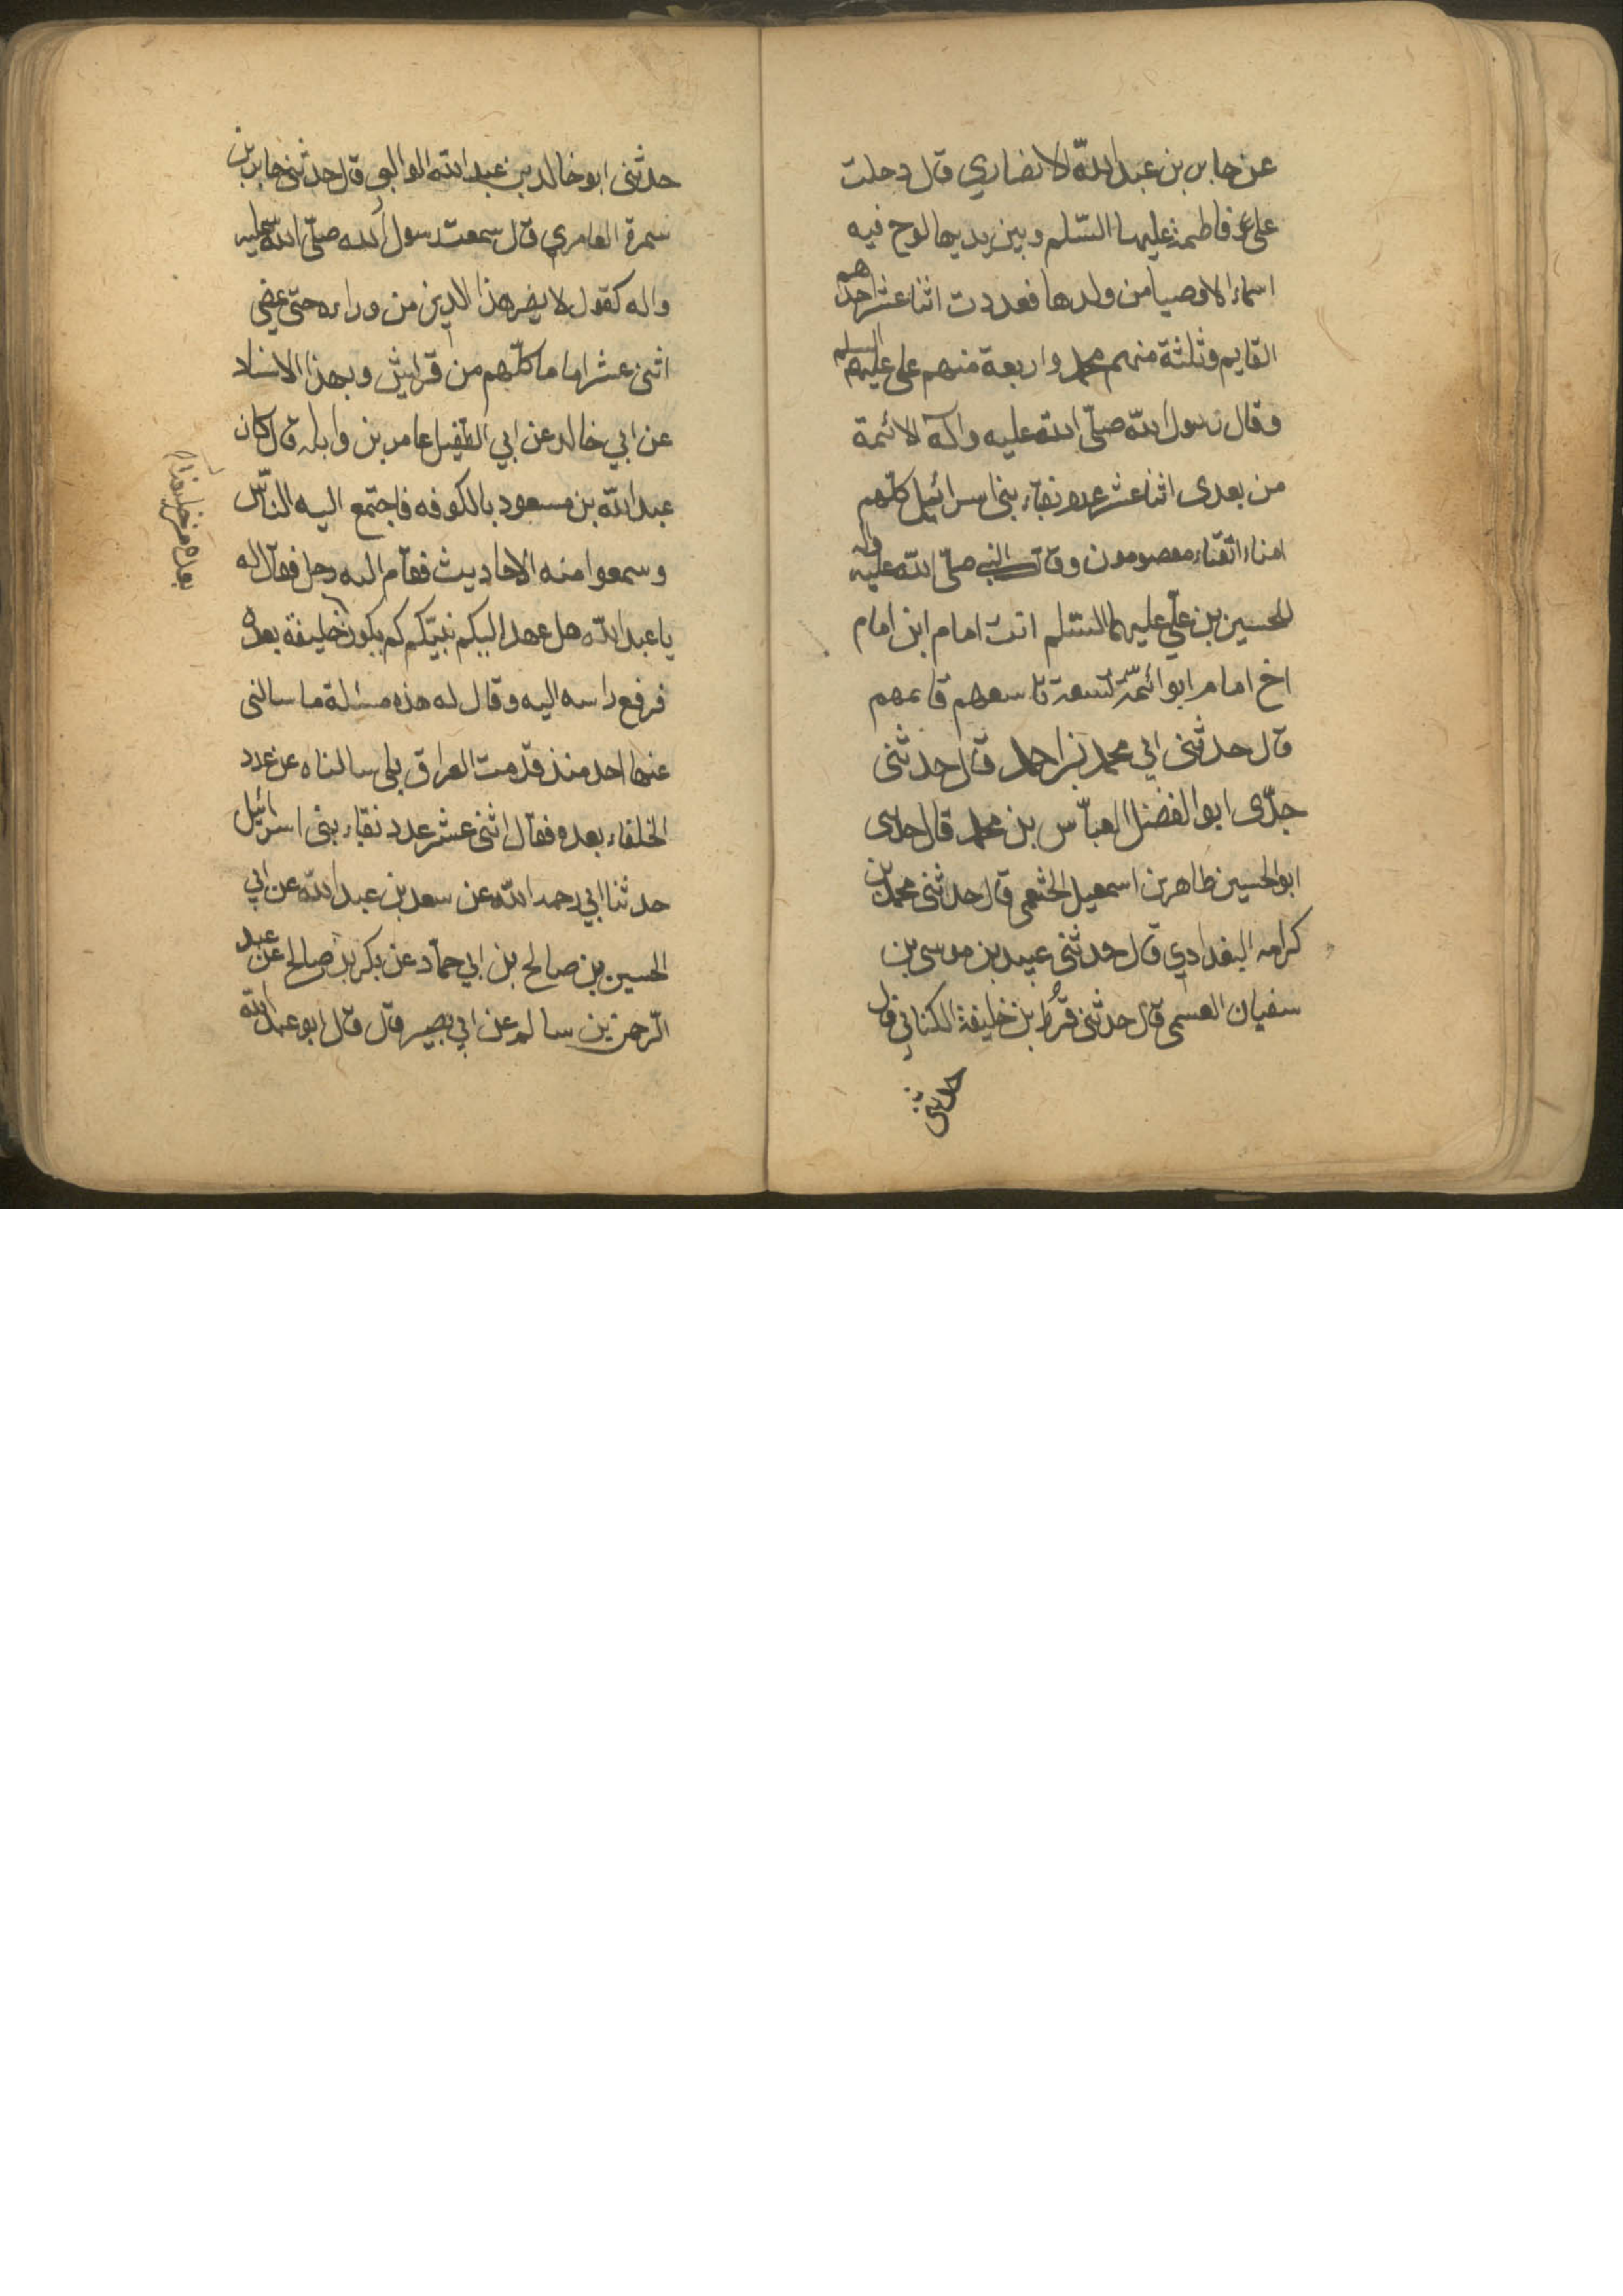 عن جابر بن عبد الله الانصاري قال دخلت
على فاطمة عليها السّلم وبين يديها لوح فيه
اسماء الاوصيا من ولدها فعددت اثنا عشر احدهم
القايم وثلثة منهم محمد واربعة منهم على عليهم السلم
وقال رسول الله صلّى الله عليه واله الائمة
من بعدى اثنا عشر عدد نقباء بنى اسرائيل كلّهم
امناء اتقياء معصومون وقال النبي صلّى الله عليه واله
للحسين بن علّي عليهما السّلم انت امام ابن امام
اخ امام ابو ائمّة تسعة تاسعهم قايمهم
قال حدثنى ابي محمد بن احمد قال حدثنى
جدّى ابو الفضل العبّاس بن محمد قال حدثنى
ابو الحسين طاهر بن اسمعيل الخثعمى قال حدثنى محمد بن
كرامه البغدادي قال حدثنى عبيد بن موسى بن
سفيان العبسى قال حدثنى قُرط بن خليفة الكناني قال
حدثنى
حدثنى ابو خالد بن عبد الله الوالبي قال حدثنى جابر بن
سمرة العامري قال سمعت رسول الله صلّى الله عليه
واله كقول لا يضر هذا الدين من وراءه حتى يمضى
اثنى عشر اماما كلّهم من قرايش وبهذا الاسناد
عن ابي خالد عن ابي الطفيل عامر بن وابله قال كان
عبد الله بن مسعود بالكوفه فاجتمع اليه النّاس
وسمعوا منه الاحاديث فقام اليه رجل فقال له
يا عبد الله هل عهد اليكم نبيّكم كم يكون خليفة بعده
فرفع راسه اليه وقال له هذه مسئلة ما سالنى
عنها احد منذ قدمت العراق بلى سالناه عن عدد
الخلفاء بعده فقال اثنى عشر عدد نقباء بنى اسرائيل
حدثنا ابي رحمه الله عن سعد بن عبد الله عن ابي
الحسين بن صالح بن ابي حمّاد عن بكر بن صالح عن عبد
الرّحمن بن سالم عن ابي بصير قال قال ابو عبد الله